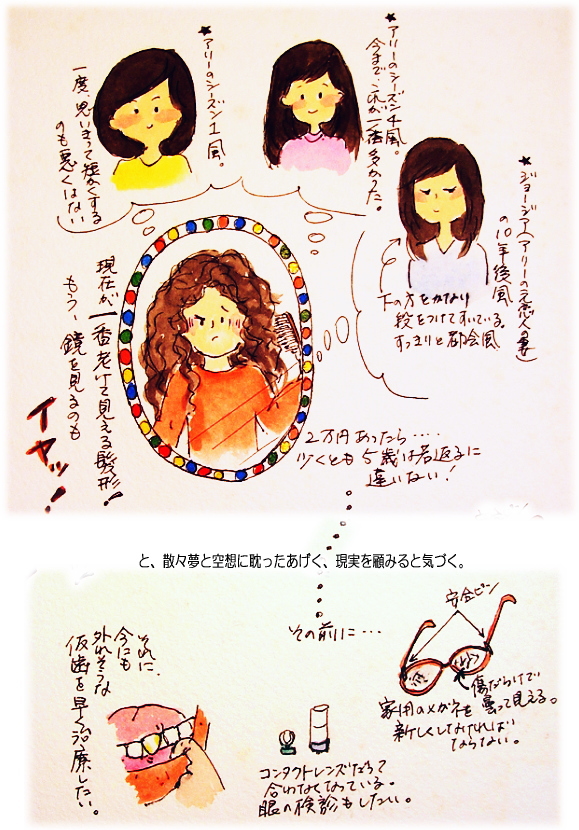 ★アリーのシーズン1風。
一度、思いきって短くする
のも悪くはない
★アリーのシーズン4風。
今まで、これが一番多かった。
★ジョージア(アリーの元恋人の妻)
の10年後風
下の方をかなり
段をつけてすいている。
すっきりと都会風
現在が一番老けて見える髪形!
もう、鏡を見るのも
イヤッ!
2万円あったら‥‥
少くとも5歳は若返るに
違いない!
と、散々夢と空想に耽ったあげく、現実を顧みると気づく。
その前に…
安全ピン
傷だらけで
曇って見える。
家用のメガネを
新しくしなければ
ならない。
コンタクトレンズだって
合わなくなっている。
眼の検診もしたい。
それに、
今にも
外れそうな
仮歯を早く治療したい。